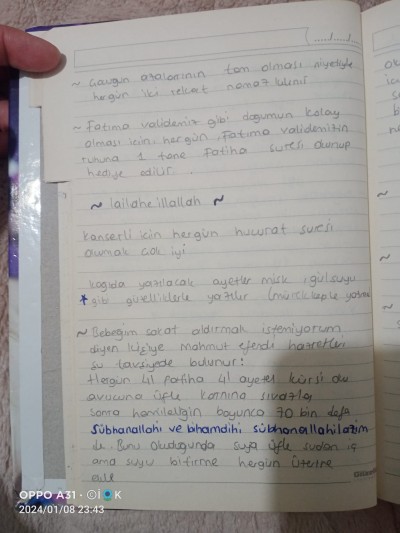 ...../...../.....
~ Cavgın azalarının tam olması niyetiyle
hergün iki rekeat namaz kılınır
~ Fatıma validemiz gibi doğumun kolay
olması için hergün Fatıma validemizin
ruhuna 1 tane Fatiha suresi okunup
hediye edilir.
~ lailahe illallah ~
kanserli için hergün hucurat suresi
okumak çok iyi
kağıda yazılacak ayetler misk, gülsuyu
* gibi güzelliklerle yazılır (mürekkeple
~ Bebeğim sakat aldırmak istemiyorum
diyen kişiye mahmut efendi hazretleri
şu tavsiyede bulunur:
Hergün 41 fatiha 41 ayetel kürsi oku
avucuna üfle karnına sıvazla
sonra hamileliğin boyunca 70 bin defa
Sübhanallahi ve bihamdihi sübhanallahilazim
de. Bunu okuduğunda suya üfle sudan iç
ama suyu bitirme hergün üzerine
ekle
OPPO A31 · ©i K
2024/01/08 23:43